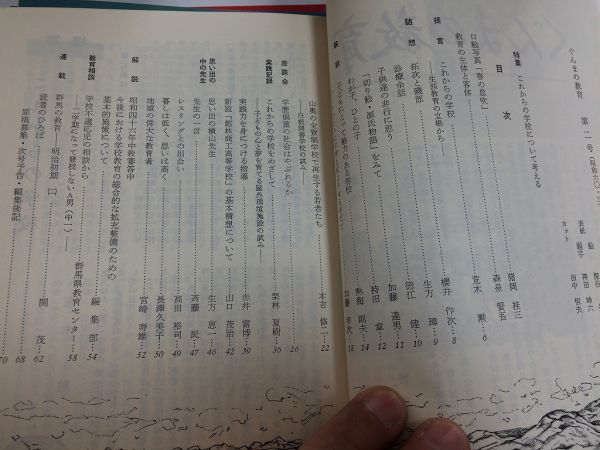 ぐんまの教育　第二号（昭和六〇・三
目　次
特集　これからの学校について考える
口絵写真「春の息吹」………猪岡　桂三
森泉　賢吾
教育の主体と客体………荒木　勲…6
提言
これからの学校………櫻井　作次…8
――生涯教育の立場から
随想
拓次と磯部………生方　璋…9
診療余話………德江　健…10
子供達の非行に思う………加藤　達男…11
「切り絵・源氏物語」をみて………持田　章…12
わが子、ひとの子………熱海　則夫…14
子どもにとって魅力のある学校………加藤　幸次…18
山奥の全寮制学校で再生する若者たち
――白根開善学校の試み――………本吉　修二…22
座談会
学歴偏重の社会はやぶれるか………26
実践記録
これからの学校をめざして………栗林　夏樹…36
――子どもの心と夢を育てる屋外環境施設の試み――
実践力を身につける指導………赤井　富博…39
新設「館林商工高等学校」の基本構想について………山口　茂治…42
思い出の中の先生
思い出の横山先生………生方　恵一…46
先生の一言………斉藤　民…47
レスリングとの出会い………高田　裕司…49
暮しは低く、思いは高く………長澤久美子…50
地域の偉大な教育者………宮崎　寿雄…52
解説
昭和四十六年中教審答申
今後における学校教育の総合的な拡充整備のための
基本的施策について………編集部…54
教育相談
学校不適応の相談から………群馬県教育センター…58
――二学期になって登校しないＡ男（中一）――
連載
群馬の教育――明治初期（二）………関　茂…62
読者のひろば………68
原稿募集・次号予告・編集後記………70
表紙　絵
題字　神田　坤六
カット　田中　恒夫